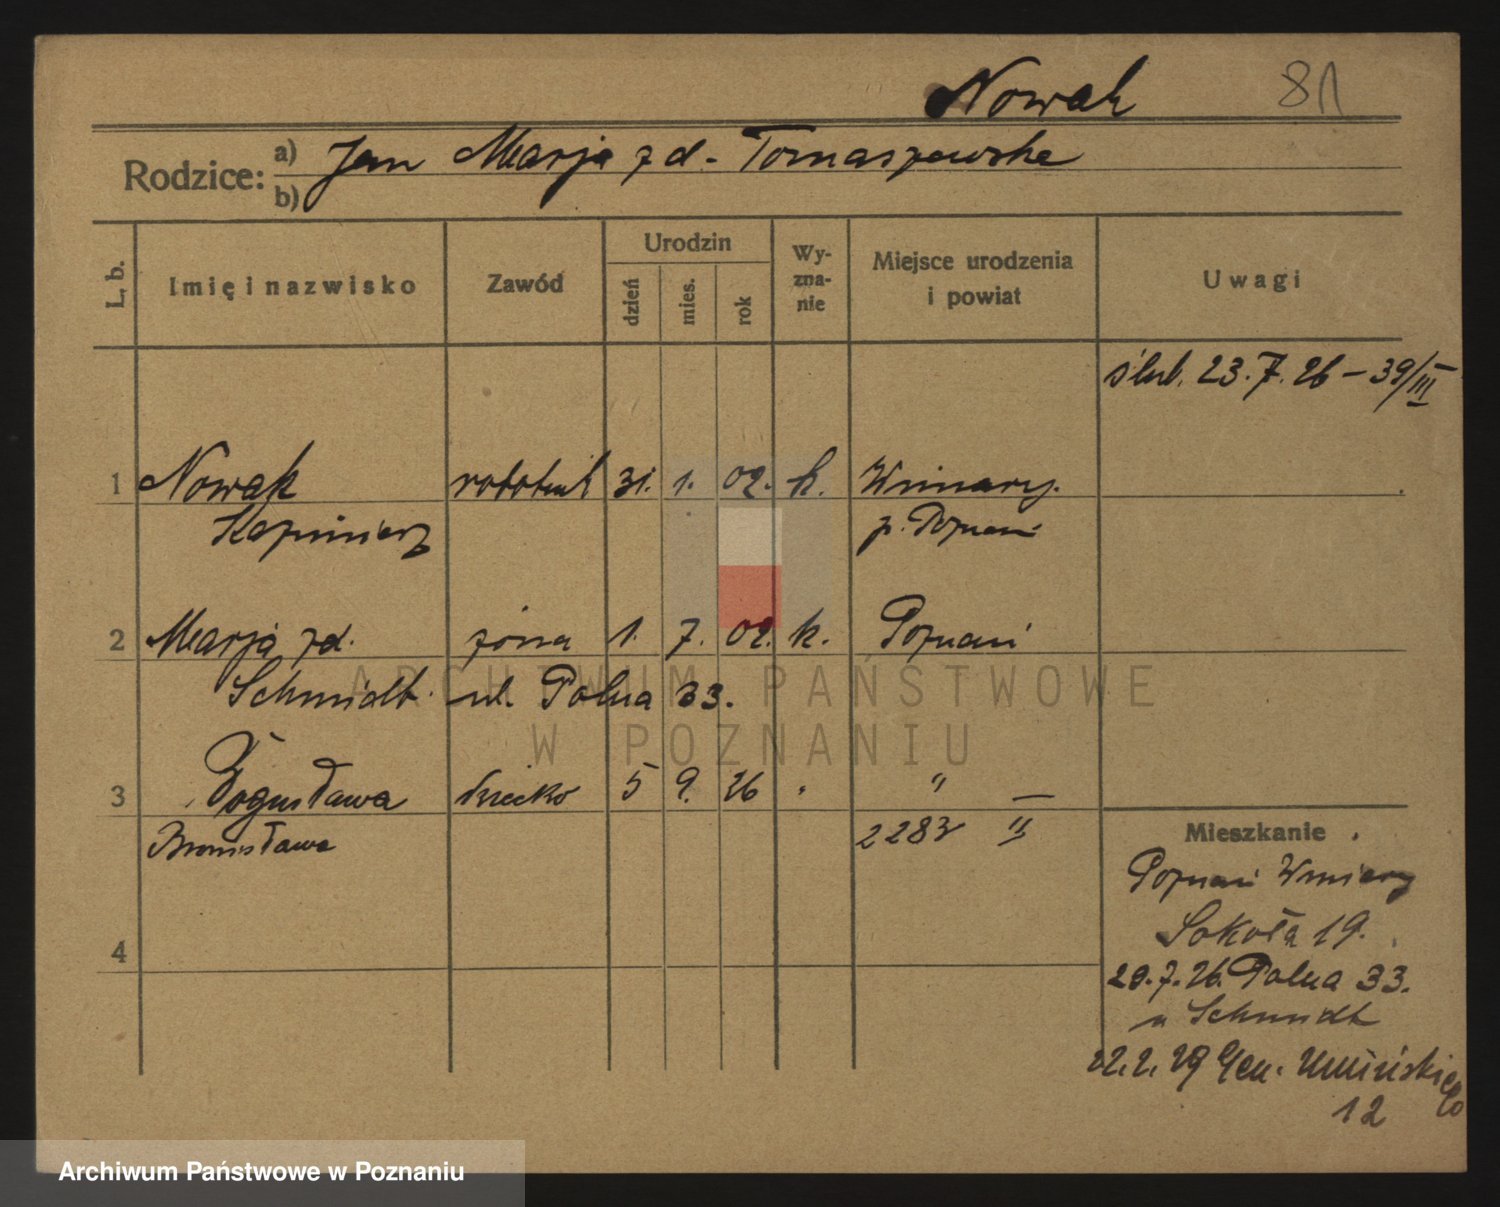 Nowak 81
Rodzice:
a) Jan Marja zd. Tomaszewska
b)
L. b.
Imię i nazwisko
Zawód
Urodzin
dzień
mies.
rok
Wy-
zna-
nie
Miejsce urodzenia
i powiat
Uwagi
ślub. 23.7.26 – 39/III
1 Nowak robotnik 31. 1. 02. k. Winiary.
Kazimierz p. Poznań
2 Marja zd. żona 1. 7. 02. k. Poznań
Schmidt ul. Polna 33.
3 Bogusława dziecko 5 9. 26 " " —
Bronisława 2283 II
4
Mieszkanie
Poznań Winiary
Sokoła 19.
29.7.26. Polna 33.
u Schmidt
22.2.29 Gen. Umińskiego
12
ARCHIWUM PAŃSTWOWE
W POZNANIU
Archiwum Państwowe w Poznaniu